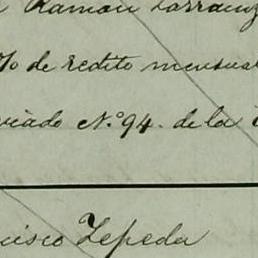 Ramón Larranz
% de redito mensual
viado N.° 94. de la
cisco Zepeda